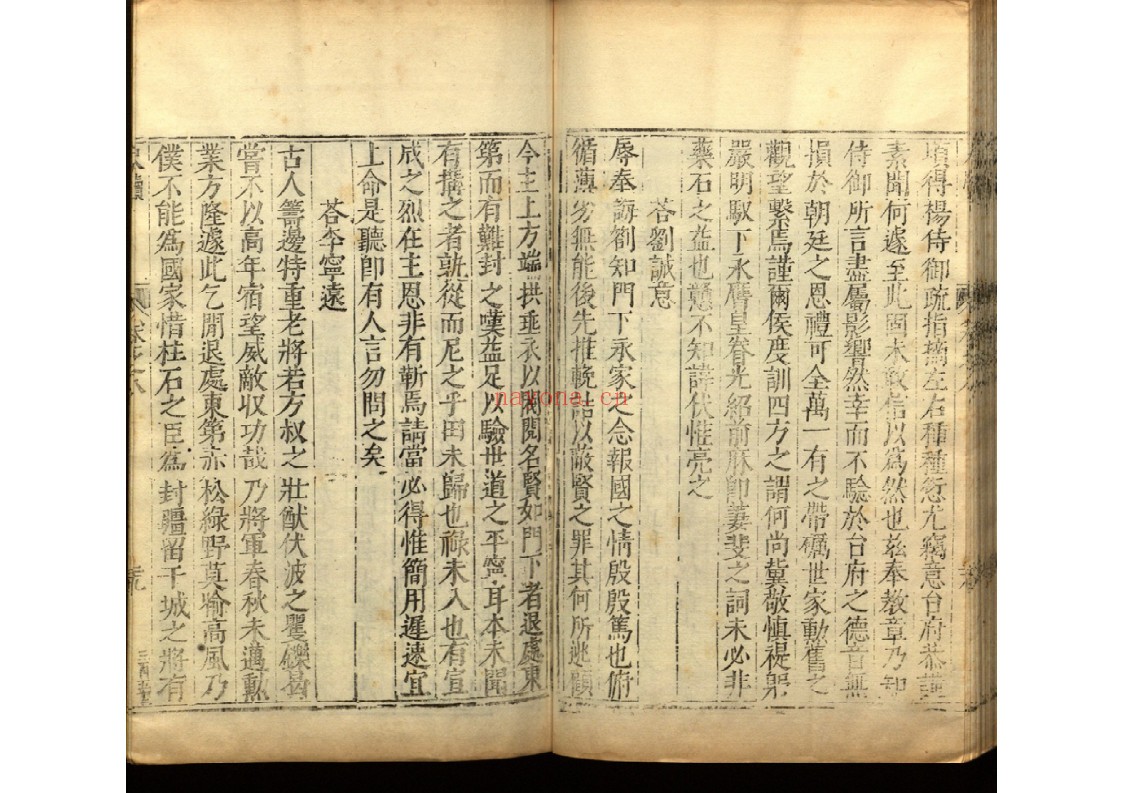 頃得楊侍御疏指摘左右種種愆尤竊意台府恭謹
素聞何遽至此固未敢信以為然也茲奉教章乃知
侍御所言盡屬影響然幸而不驗於台府之德音無
損於朝廷之恩禮可全萬一有之帶礪世家勳舊之
觀望繫焉謹爾侯度訓四方之謂何尚冀敬慎禔躬
嚴明馭下永膺皇眷光紹前庥即萋斐之詞未必非
藥石之益也戇不知諱伏惟亮之
答劉誠意
辱奉誨劄知門下永家之念報國之情殷殷篤也俯
循薄劣無能後先推輓詁以蔽賢之罪其何所逃顧
今主上方端拱垂衣以閥閱名賢如門下者退處東
第而有難封之嘆益足以驗世道之平寧耳本未聞
有攘之者孰從而尼之乎田未歸也祿未入也有宣
成之烈在主恩非有靳焉請當必得惟簡用遲速宜
上命是聽即有人言勿問之矣
答李寧遠
古人籌邊特重老將若方叔之壯猷伏波之矍鑠曷
嘗不以高年宿望威敵收功哉乃將軍春秋未邁勳
業方隆遽此乞閒退處東第赤松綠野莫喻高風乃
僕不能為國家惜柱石之臣為封疆留干城之將有
nayona.cn